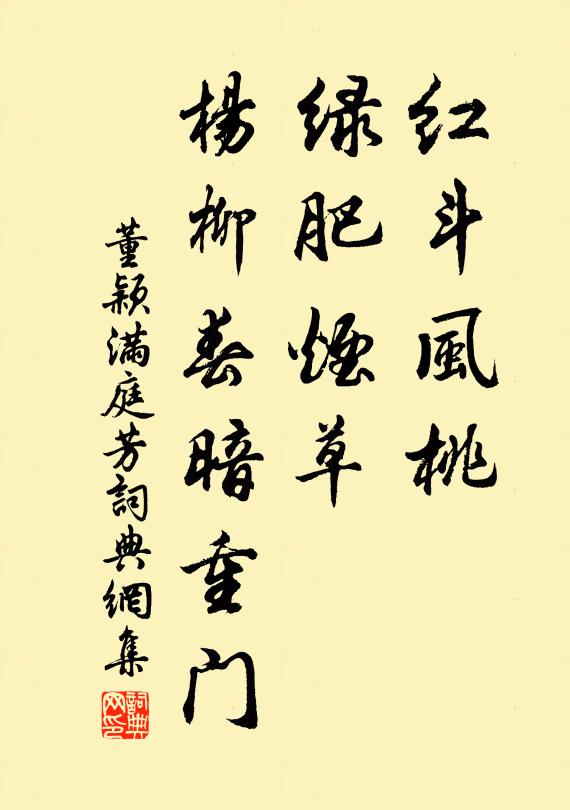 红斗風桃
绿肥煙草
楊柳春暗重门
董颖满庭芳詞典網集
詞典网印